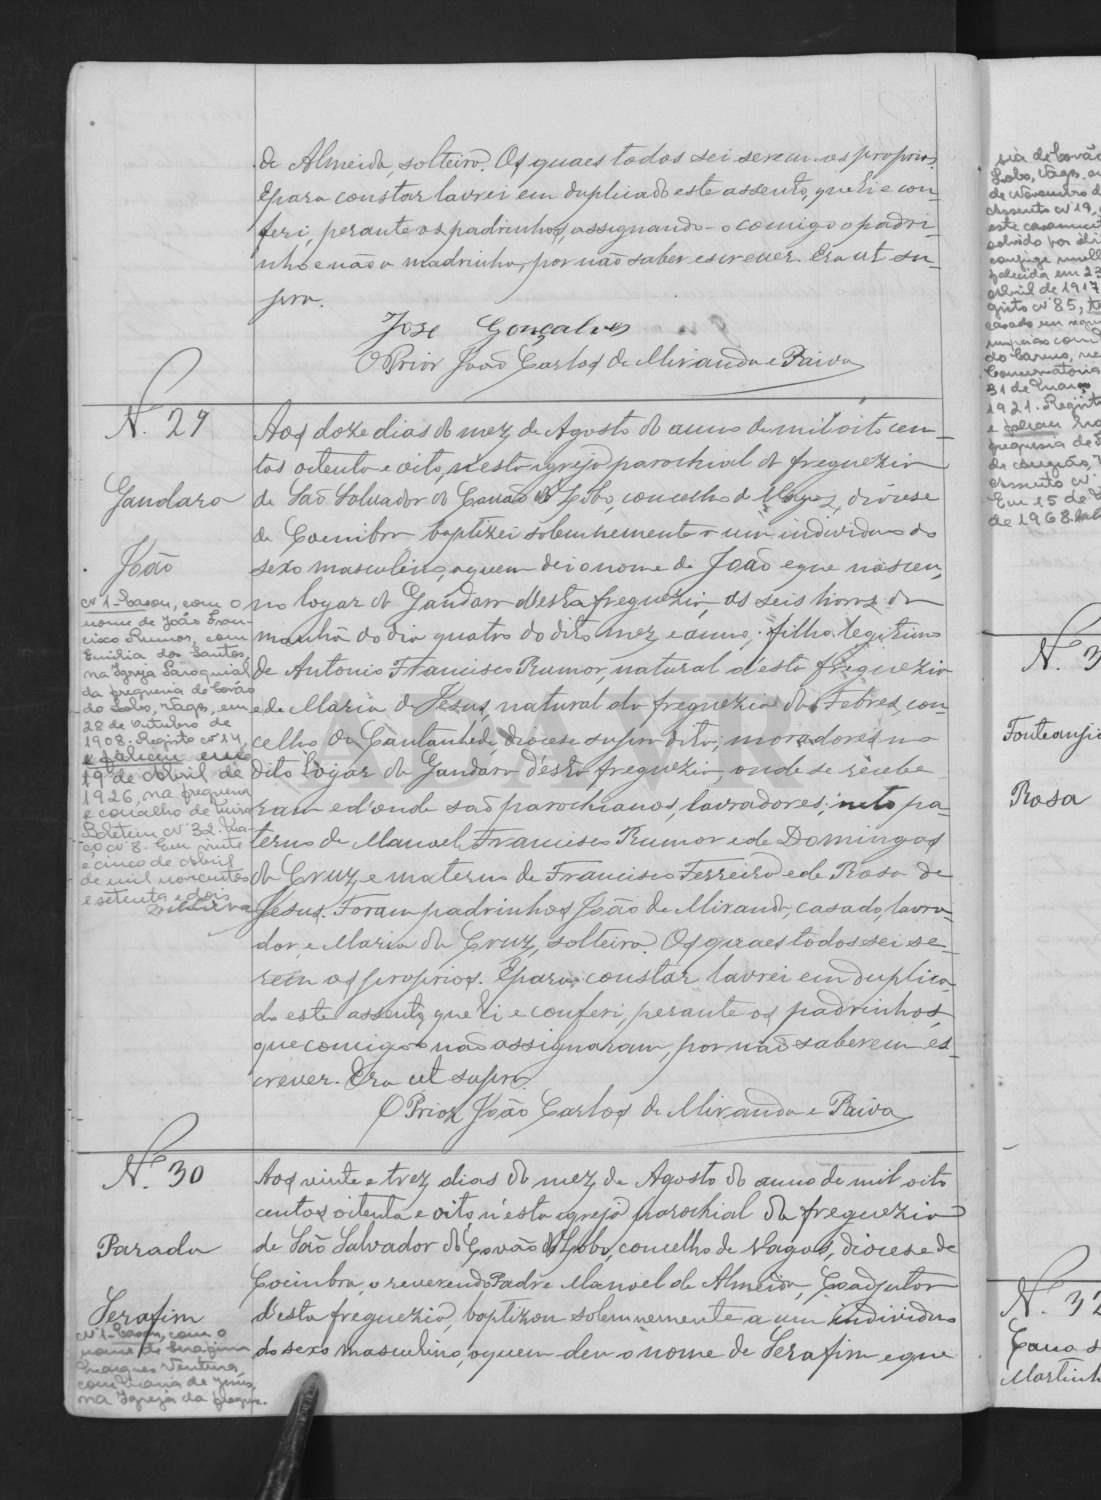 de Almeida, solteira. Os quaes todos sei serem os proprios.
E para constar lavrei em duplicado este assento, que li e con-
feri, perante os padrinhos, assignando-o comigo o padri-
nho e não a madrinha, por não saber escrever. Era ut su-
pra.
José Gonçalves
O Prior João Carlos de Miranda e Paiva
N.º 29
Gandara
João
Nº 1-Casou, com o
nome de João Fran-
cisco Rumor, com
Emilia dos Santos,
na Igreja Paroquial
da freguesia de Covão
do Lobo, Vagos, em
28 de outubro de
1908. Registo nº 14,
e faleceu em
19 de Abril de
1926, na freguesia
e concelho de Mira
Boletim nº 32. Ma-
ço nº 8. Em vinte
e cinco de Abril
de mil novecentos
e setenta e dois
Aos doze dias do mez de Agosto do anno de mil oito cen-
tos oitenta e oito, n'esta igreja parochial da freguezia
de São Salvador do Covão do Lobo, concelho de Vagos, diocese
de Coimbra baptizei solemnemente a um individuo do
sexo masculino, a quem dei o nome de João e que nasceu,
no logar da Gandara d'esta freguezia, ás seis horas da
manhã do dia quatro do dito mez e anno, filho legitimo
de Antonio Francisco Rumor, natural d'esta freguezia
e de Maria de Jesus, natural da freguezia de Febres, con-
celho de Cantanhede, diocese supra dita; moradores no
dito logar da Gandara d'esta freguezia, onde se recebe
ram e d'onde são parochianos, lavradores; neto pa-
terno de Manoel Francisco Rumor e de Domingas
da Cruz, e materno de Francisco Ferreira e de Rosa de
Jesus. Foram padrinhos João de Miranda, casado, lavra-
dor, e Maria da Cruz, solteira. Os quaes todos sei se-
rem os proprios. E para constar lavrei em duplica-
do este assento, que li e conferi, perante os padrinhos,
que comigo não assignaram, por não saberem es-
crever. Era ut supra.
O Prior João Carlos de Miranda e Paiva
N.º 30
Parada
Serafim
Nº 1-Casou, com o
nome de Serafim
Marques Ventura,
com Maria de Jesus,
na Igreja da fregue.
Aos vinte e trez dias do mez de Agosto do anno de mil oito
centos oitenta e oito, n'esta igreja parochial da freguezia
de São Salvador do Covão do Lobo, concelho de Vagos, diocese de
Coimbra, o reverendo Padre Manoel de Almeida, Coadjutor
d'esta freguezia, baptizou solemnemente a um individuo
do sexo masculino, a quem deu o nome de Serafim e que
ADAVR
sia de Covão
Lobo, Vagos, em
de Novembro d
Assento nº 19,
este casamento
conjuge mulh
falecida em 23
Abril de 1917
gisto nº 85,
casado em segun
do Carmo, na
Conservatoria
31 de Março
1921. Registo
e faleceu na
freguesia de
Assento nº
Em 15 de
de 1968.
N.º 3
Fonte anjo
Rosa
N.º 32
Martinh